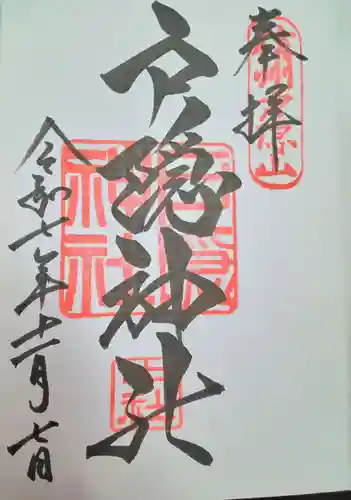 奉拝
戸隠神社
令和七年十一月七日